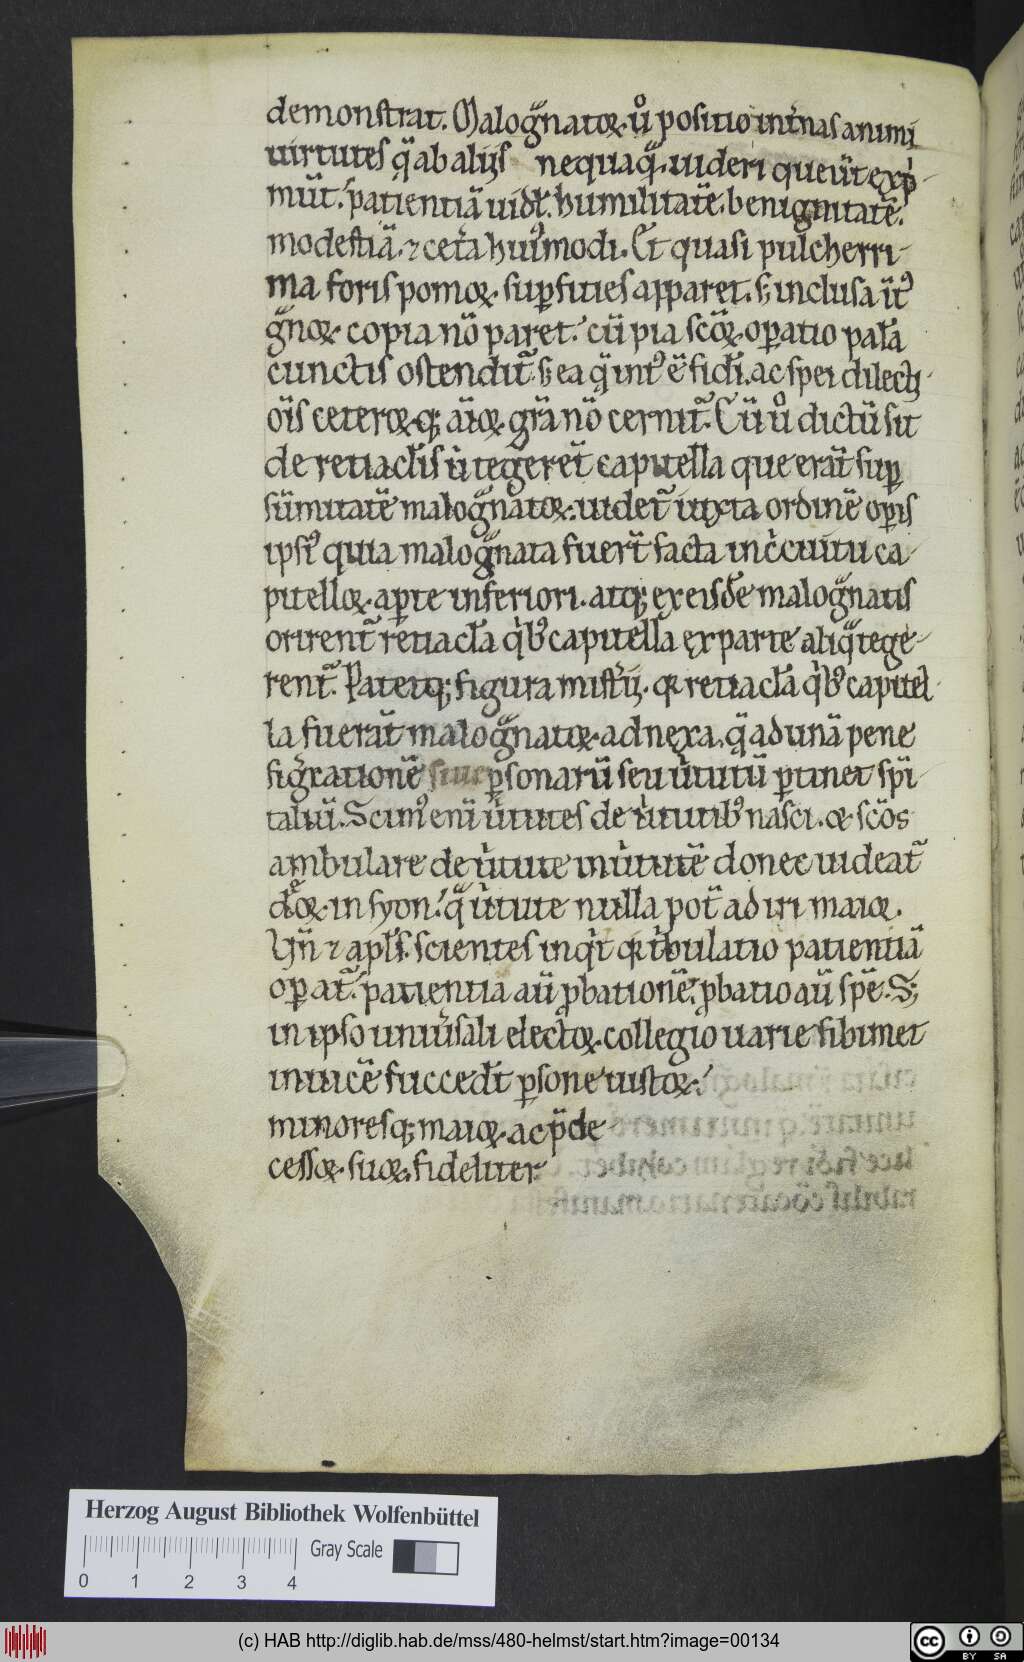 demonstrat. Malogͣnatoꝝ. ů positio int̾nas animi
uirtutes q̈ ab alijs nequaq̈. uideri queūt exp̍-
mūt. patientiā uidꝫ. humilitatē. benignitatē.
modestiā. ⁊ cet̾a huꝰmodi. Et quasi pulcherri-
ma foris pomoꝝ. suꝑfities apparet. s; inclusa īt̾ꝰ
gͣnoꝝ. copia nō paret. cū pia sc̄oꝝ. oꝑatio palā
cunctis ostendit̃. s; ea q̄ intꝰ ē fidei. ac spei dilecti-
ōis ceteroꝝ. q; aīoꝝ. gr̄a nō cernit̃. Cū ů dictū sit
de retiaclis ut tegerēt capitella que erāt suꝑ
sūmitatē malogͣnatoꝝ. uidet̃ iuxta ordinē oꝑis
ipsiꝰ quia malogͣnata fuerīt facta in c̍cuitu ca-
pitelloꝝ. a ꝑte inferiori. atq; ex eisdē malogͣnatis
orirent̃ retiacla q̍bꝰ capitella ex parte aliqͣ tege-
rent̃. Patetq; figura mist̾ij. qꝫ retiacla q̍bꝰ capitel-
la fuerāt malogͣnatoꝝ. adnexa. q̄ ad unā pene
sigͥxationē siue ꝑsonarū seu u̍tutū ꝑtinet sp̄i-
taliū. Scimꝰ enī u̍tutes de u̍tutibꝰ nasci. ꝫ sc̄os
ambulare de u̍tute in u̍tutē donec uideat̃
dꝰ deoꝝ. in syon. qͣ u̍tute nulla pot̃ adiri maioꝝ.
Hn̄ ⁊ apl̄s. scientes inqͥt qꝫ t̍bulatio patientiā
oꝑat̃. patientia aū ꝓbationē. ꝓbatio aū spē. S;
in ipso uniu̾sali electoꝝ. collegio uarie sibimet
inuicē succedūt ꝑsone iustoꝝ.
minoresq; maioꝝ. ac p̄de
cessoꝝ. suoꝝ. fideliter
Herzog August Bibliothek Wolfenbüttel
Gray Scale
0 1 2 3 4
(c) HAB http://diglib.hab.de/mss/480-helmst/start.htm?image=00134
cc BY SA